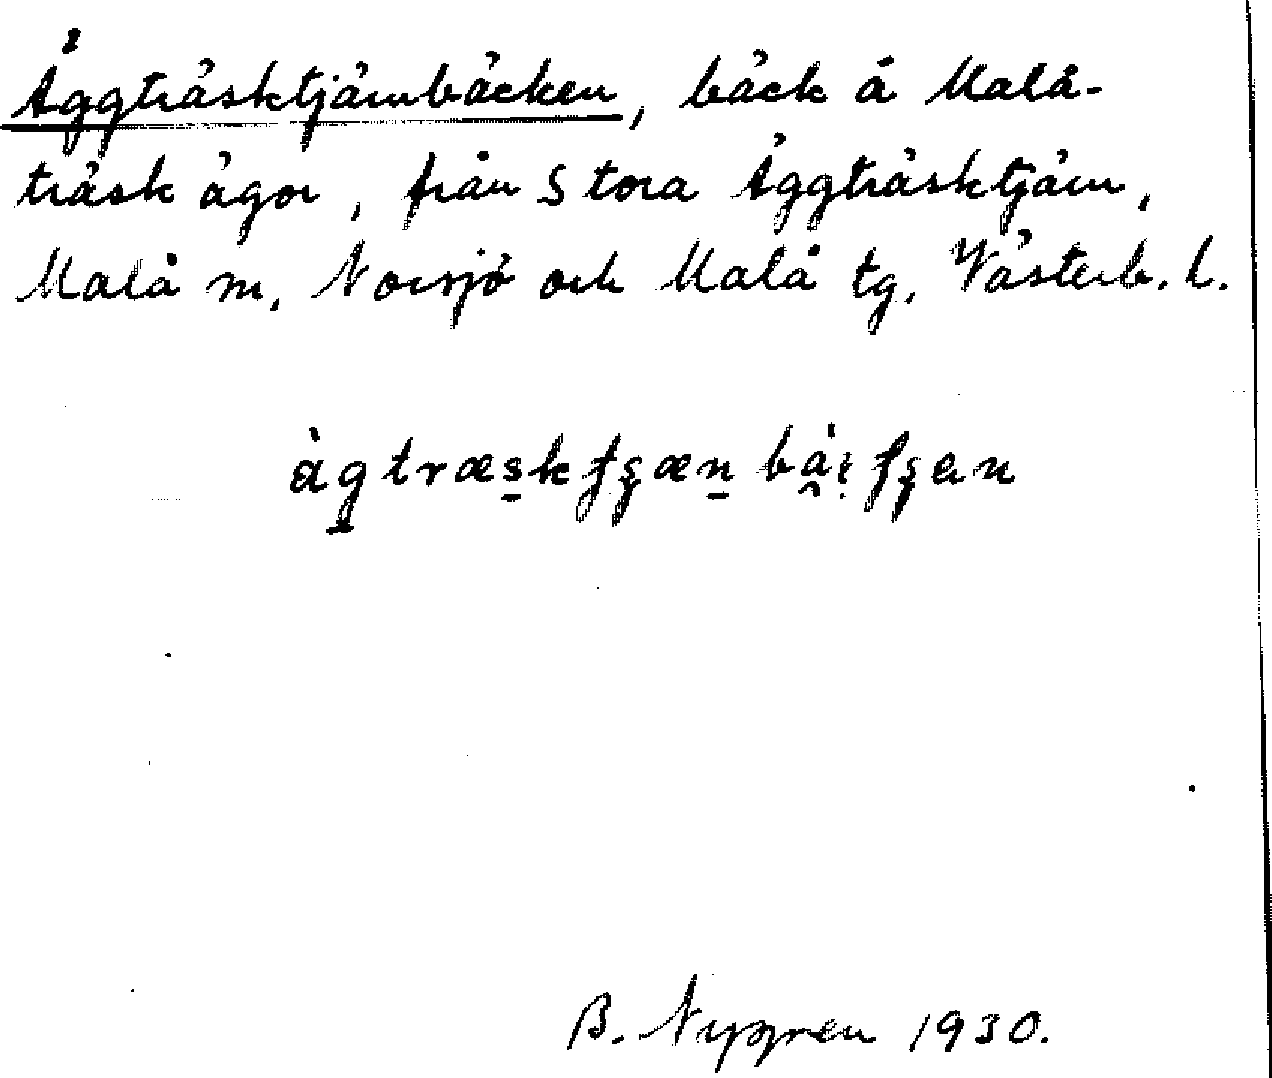 Äggträsktjärnbäcken, bäck å Malå-
träsk ägor, från Stora Äggträsktjärn,
Malå m, Norsjö och Malå tg, Västerb. l.
B. Nygren 1930.